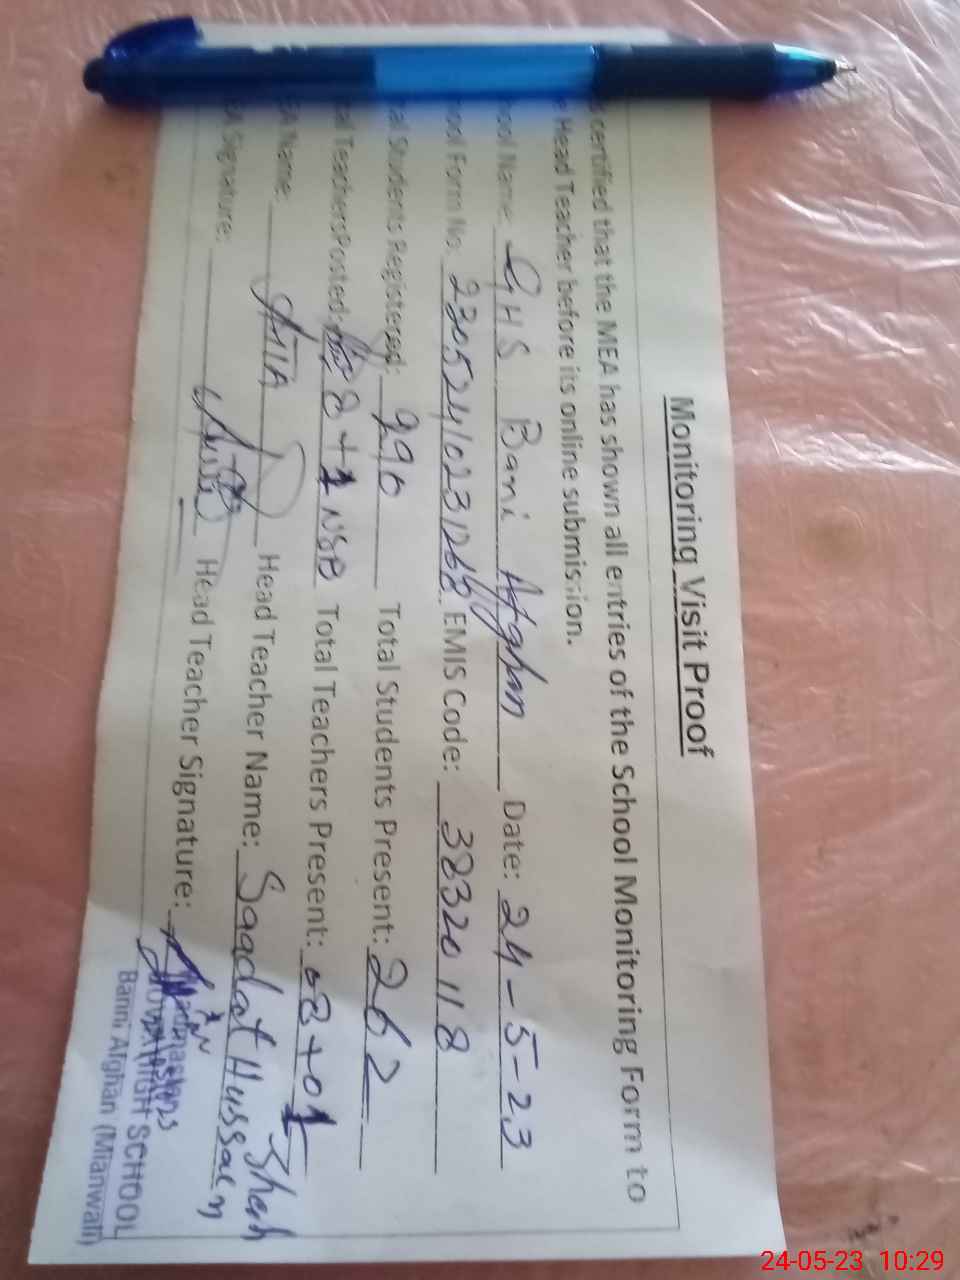 Monitoring Visit Proof
certified that the MEA has shown all entries of the School Monitoring Form to
Head Teacher before its online submission.
ool Name: GHS Bani Afghan Date: 24-5-23
ool Form No: EMIS Code: 38320118
al Students Registered: 290 Total Students Present: 262
al Teachers Posted: 8+1 NSB Total Teachers Present: 08+01
EA Name: ATTA Head Teacher Name: Saadat Hussain Shah
EA Signature: Head Teacher Signature:
HIGH SCHOOL
Banni Afghan (Mianwali)
24-05-23 10:29